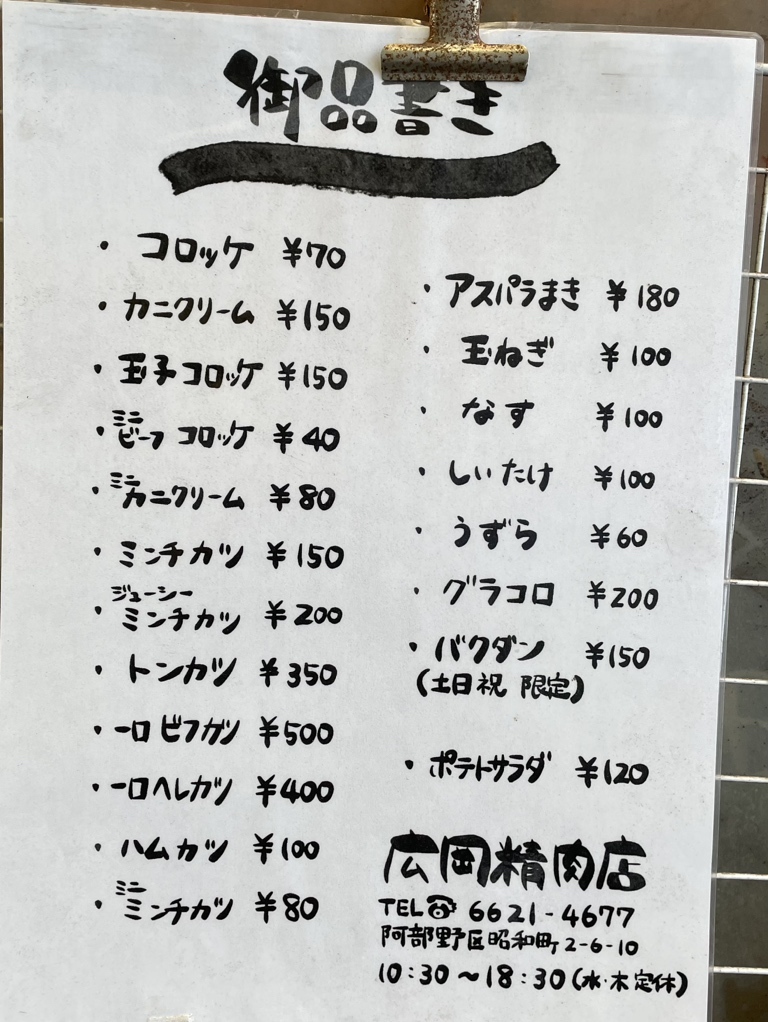 御品書き
・コロッケ ¥70
・カニクリーム ¥150
・玉子コロッケ ¥150
・ミニビーフコロッケ ¥40
・ミニカニクリーム ¥80
・ミンチカツ ¥150
・ジューシーミンチカツ ¥200
・トンカツ ¥350
・一口ビフカツ ¥500
・一口ヘレカツ ¥400
・ハムカツ ¥100
・ミニミンチカツ ¥80
・アスパラまき ¥180
・玉ねぎ ¥100
・なす ¥100
・しいたけ ¥100
・うずら ¥60
・グラコロ ¥200
・バクダン ¥150
(土日祝 限定)
・ポテトサラダ ¥120
広岡精肉店
TEL☎ 6621-4677
阿部野区昭和町2-6-10
10:30〜18:30(水・木定休)